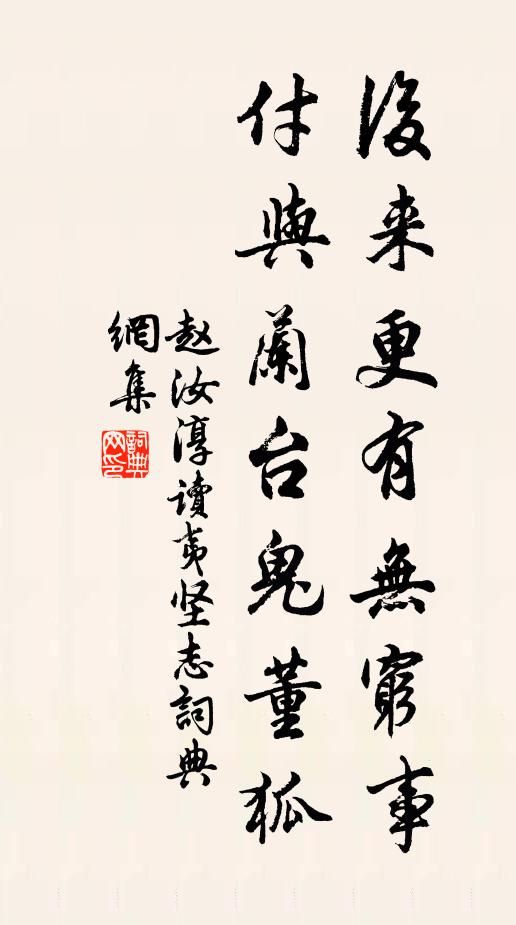 後来更有無窮事
付與蘭台鬼董狐
赵汝淳讀夷坚志詞典
網集
詞典網印